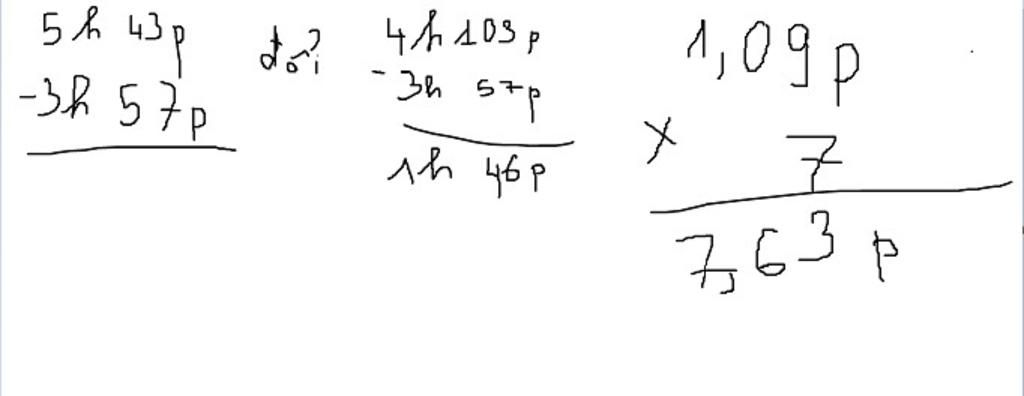 5h 43p
-3h 57p
đổi
4h 103p
-3h 57p
1h 46p
1,09p
x 7
7,63 p